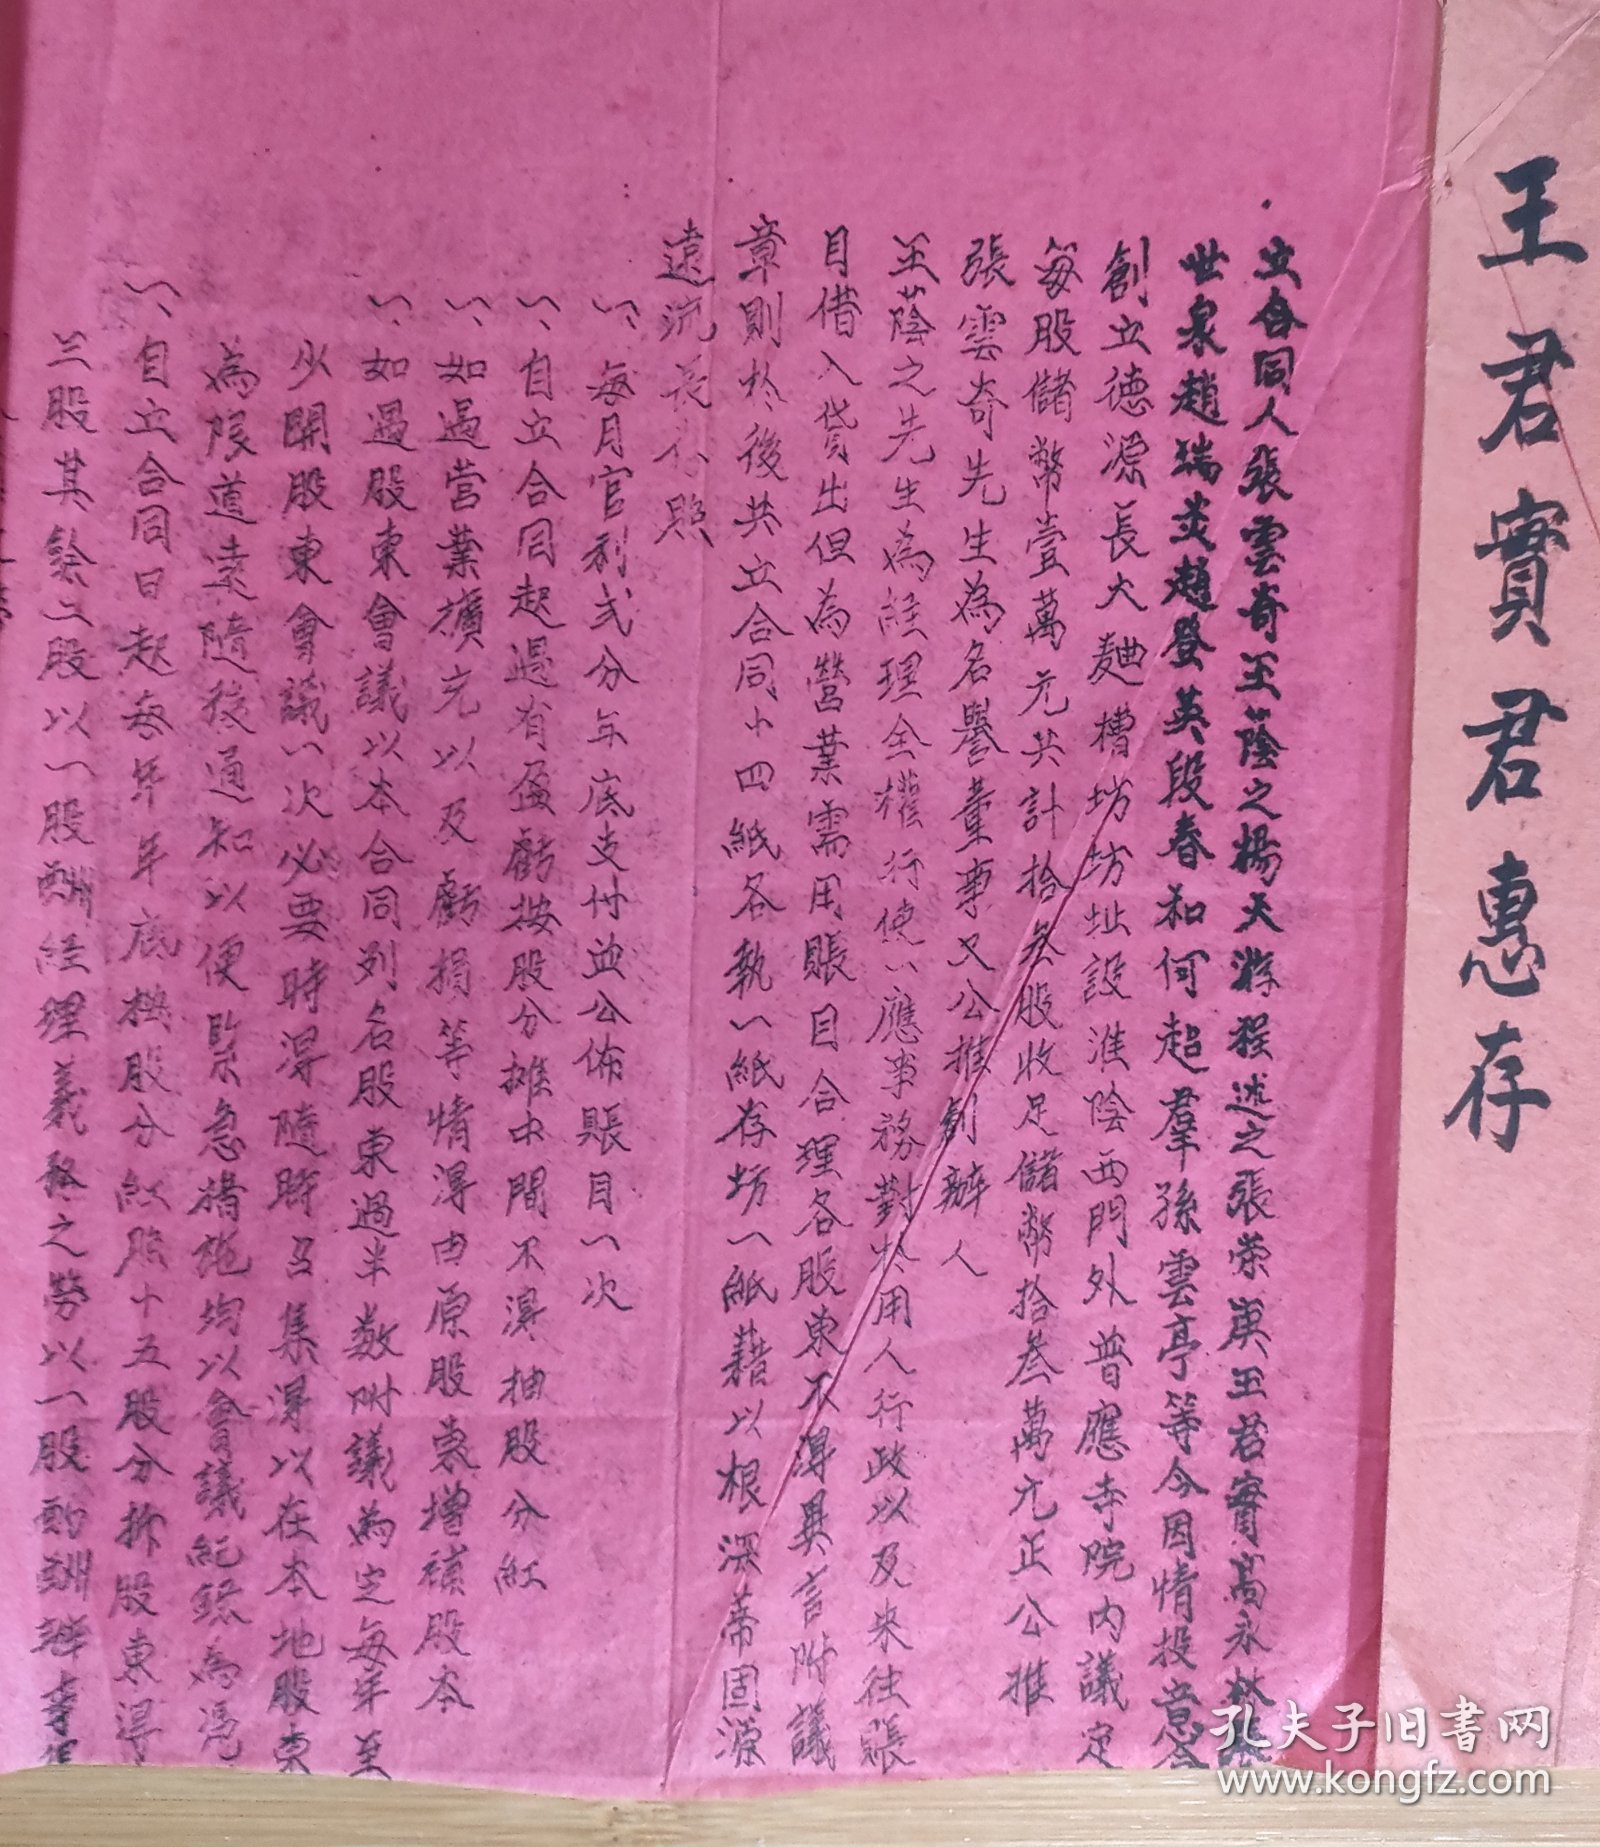 王君實君惠存
立合同人張雲奇王蔭之楊天游程述之張榮庚王君實高永
世泉趙瑞炎趙登英段春和何超羣孫雲亭等今因情投意合
創立德源長大麯槽坊坊址設淮陰西門外普應寺院內議定
每股儲幣壹萬元共計拾叁股收足儲幣拾叁萬元正公推
張雲奇先生為名譽董事又公推創辦人
王蔭之先生為經理全權行使一應事務對於用人行政以及來往賬
目借入貸出但為營業需用賬目合理各股東不得異言附議
章則於後共立合同十四紙各執一紙存坊一紙藉以根深蒂固源
遠流長存照
一、每月官利弍分年底支付並公佈賬目一次
一、自立合同起遇有盈虧按股分攤中間不得抽股分紅
一、如遇營業擴充以及虧損等情得由原股東增補股本
一、如遇股東會議以本合同列名股東過半数附議為定每年至
少開股東會議一次必要時得隨時召集得以在本地股東
為限道遠隨後通知以便緊急措施均以會議紀錄為凭
一、自立合同日起每年年底按股分紅照十五股分拆股東得
三股其餘二股以一股酬經理義務之勞以一股酌酬
孔夫子旧书网
www.kongfz.com